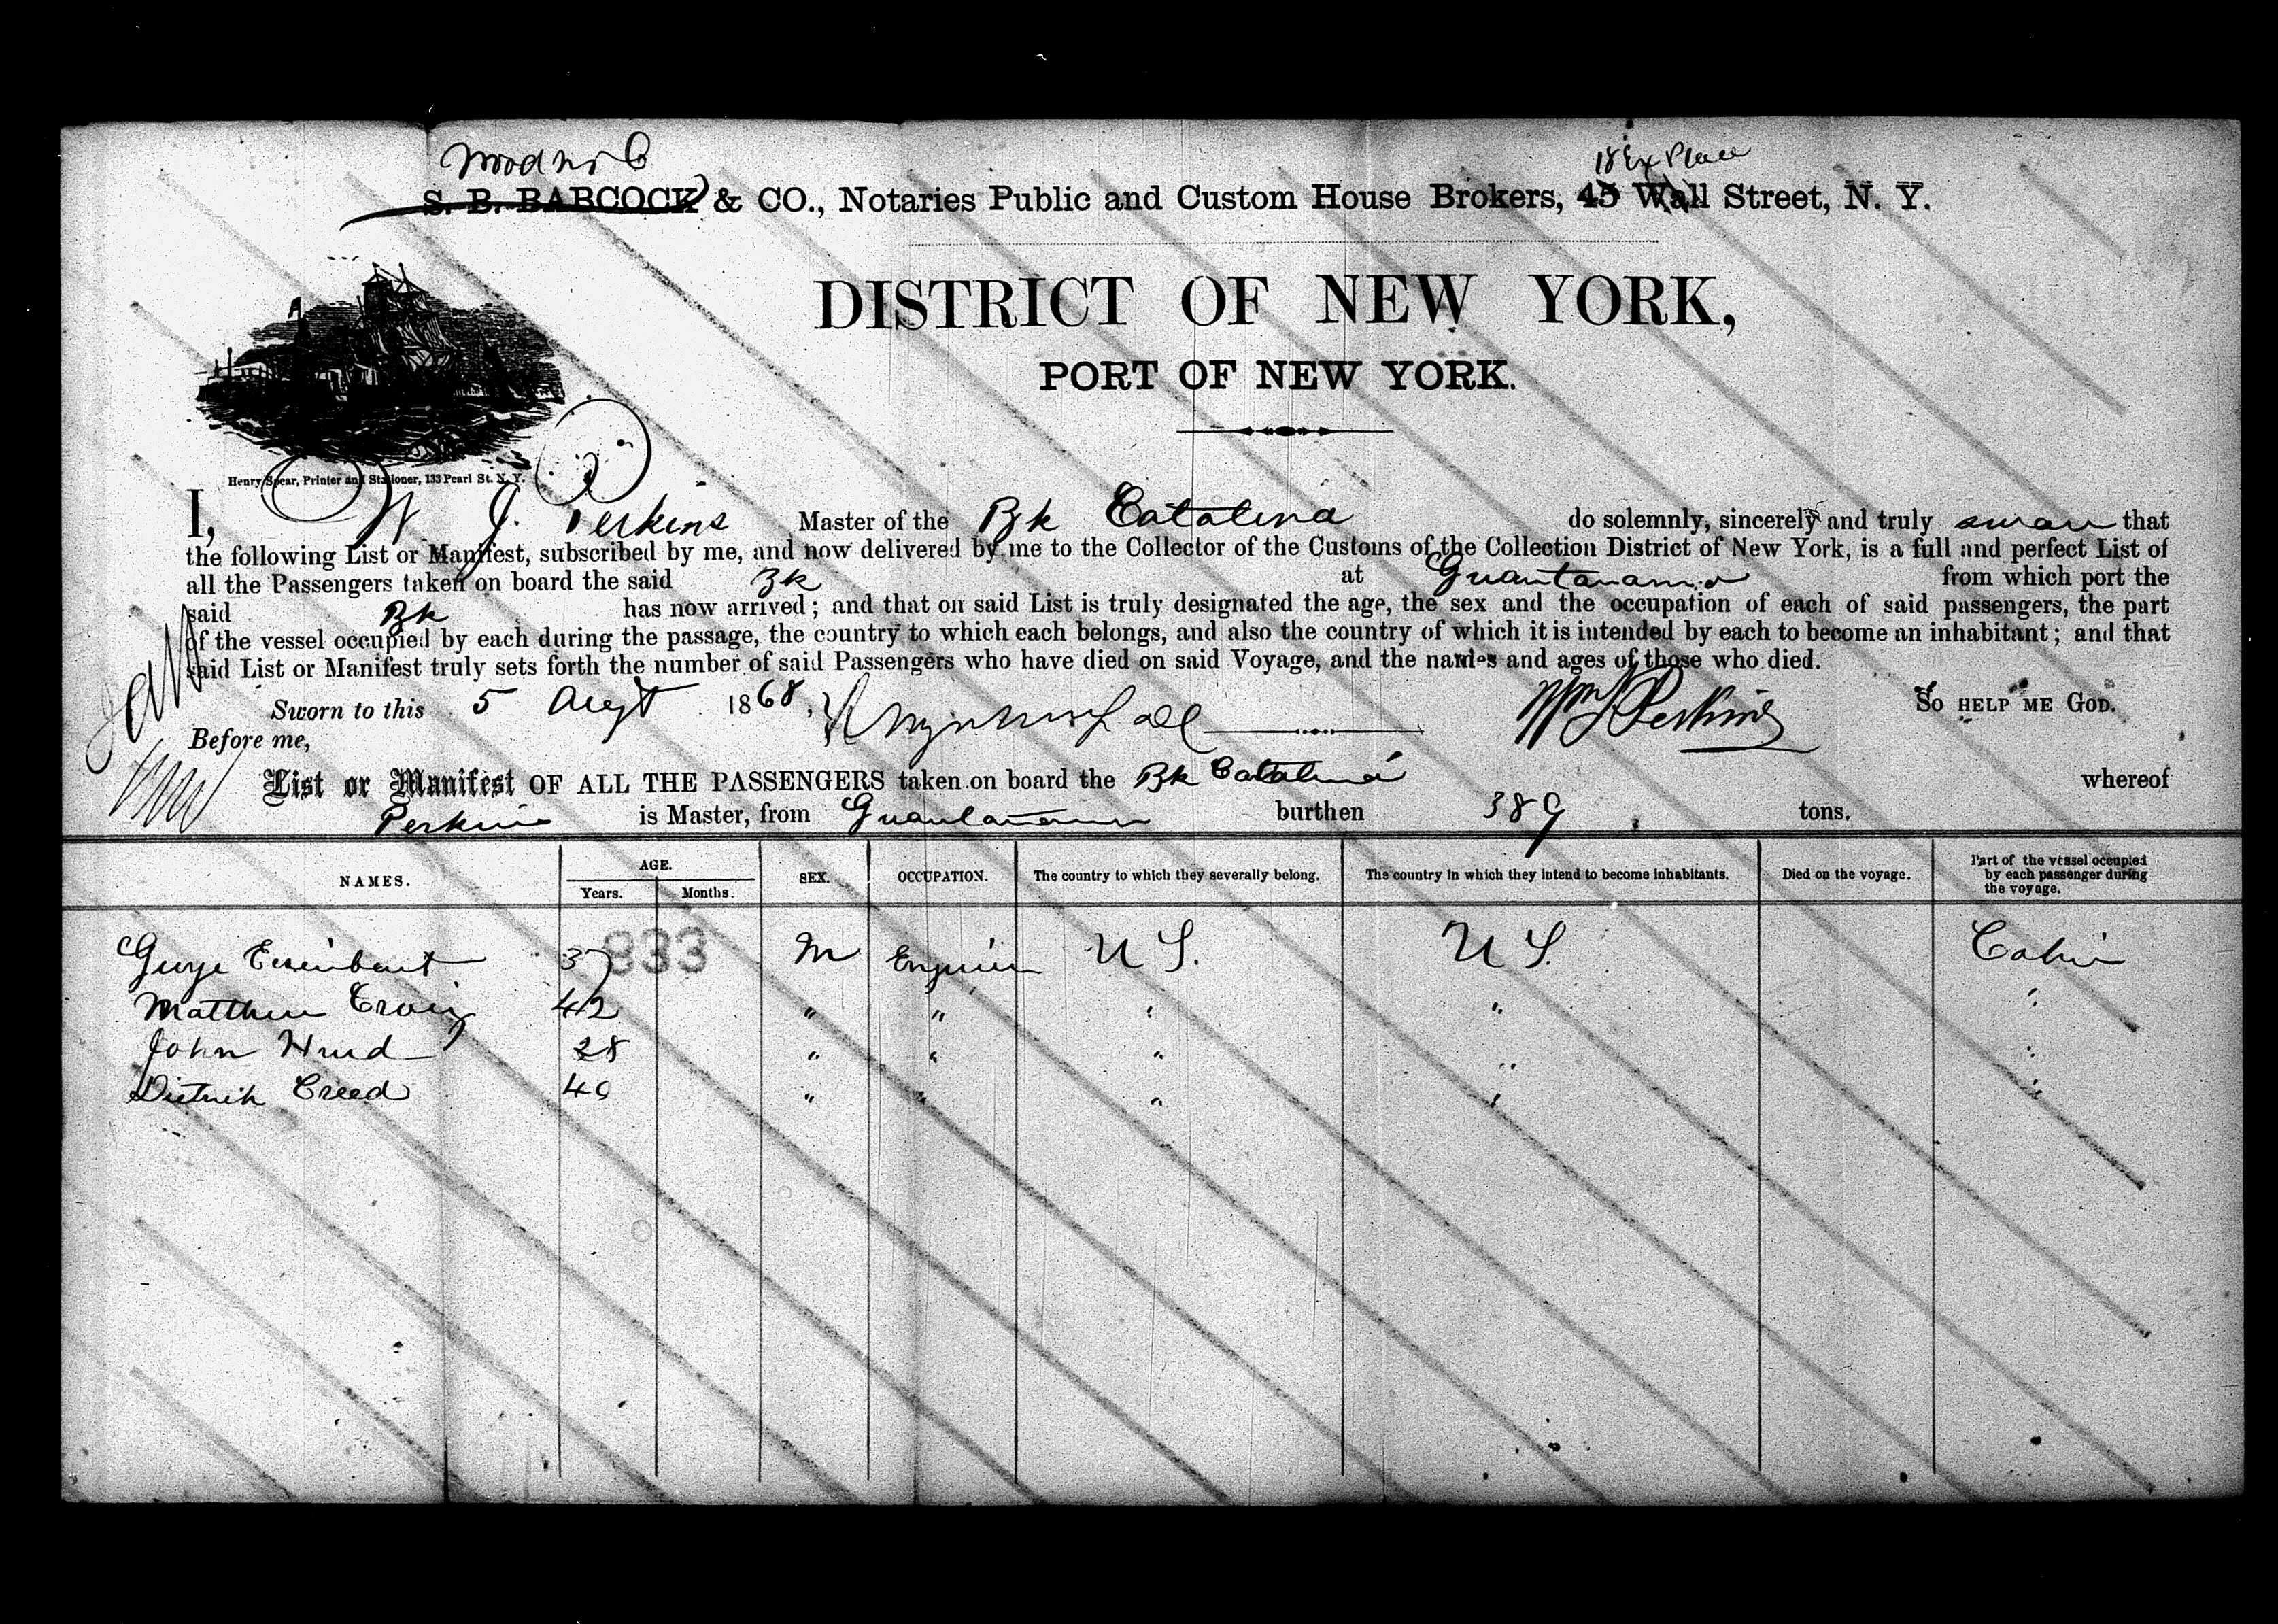 18 Ex Place
S. B. BABCOCK & CO., Notaries Public and Custom House Brokers, 45 Wall Street, N. Y.
DISTRICT OF NEW YORK,
PORT OF NEW YORK.
Henry Spear, Printer and Stationer, 133 Pearl St. N. Y.
I, W. J. Perkins Master of the Bk Catalina do solemnly, sincerely and truly swear that
the following List or Manifest, subscribed by me, and now delivered by me to the Collector of the Customs of the Collection District of New York, is a full and perfect List of
all the Passengers taken on board the said Bk at Guantanamo from which port the
said Bk has now arrived; and that on said List is truly designated the age, the sex and the occupation of each of said passengers, the part
of the vessel occupied by each during the passage, the country to which each belongs, and also the country of which it is intended by each to become an inhabitant; and that
said List or Manifest truly sets forth the number of said Passengers who have died on said Voyage, and the names and ages of those who died.
Sworn to this 5 Augt 1868, Wm J Perkins SO HELP ME GOD.
Before me,
List or Manifest OF ALL THE PASSENGERS taken on board the Bk Catalina whereof
Perkins is Master, from Guantanamo burthen 389 tons.
NAMES. AGE. Years. Months. SEX. OCCUPATION. The country to which they severally belong. The country in which they intend to become inhabitants. Died on the voyage. Part of the vessel occupied by each passenger during the voyage.
833
George 37 M Engineer U S. U S. Cabin
Matthew Craig 42 " " " " "
John Hurd 28 " " " " "
Dietrich Creed 40 " " " " "